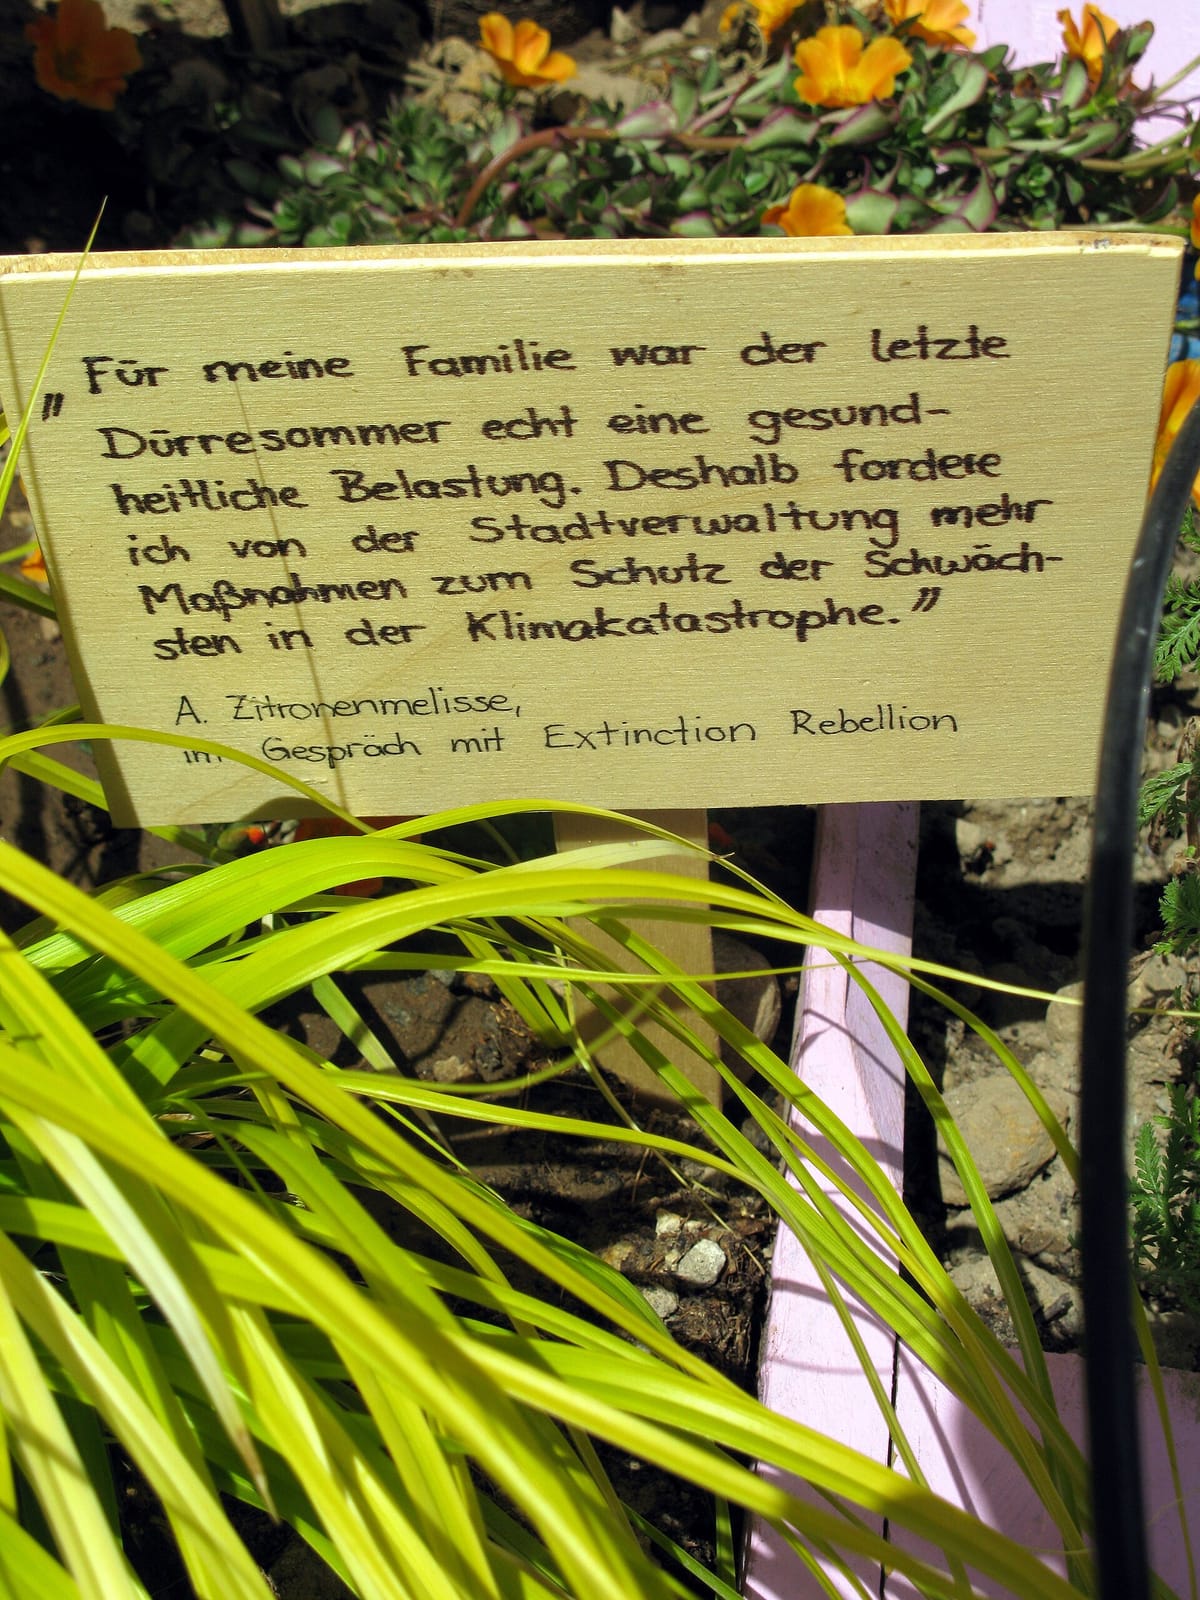 „Für meine Familie war der letzte
Dürresommer echt eine gesund-
heitliche Belastung. Deshalb fordere
ich von der Stadtverwaltung mehr
Maßnahmen zum Schutz der Schwäch-
sten in der Klimakatastrophe.”
A. Zitronenmelisse,
im Gespräch mit Extinction Rebellion